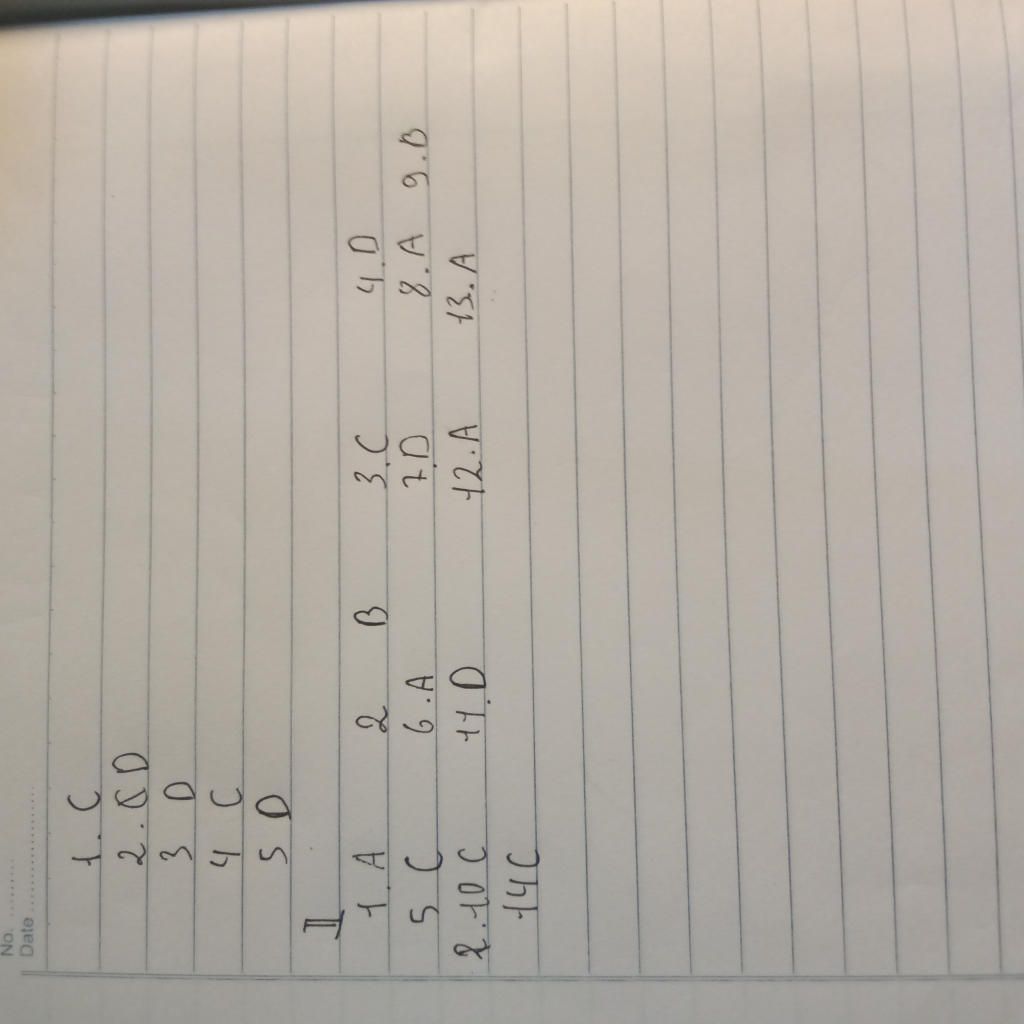 No. ........
Date ..................
1. C
2. D
3 D
4 C
5 D
II
1. A 2 B 3. C 4. D
5 C 6. A 7. D 8. A 9. B
10 C 11. D 12. A 13. A
14 C